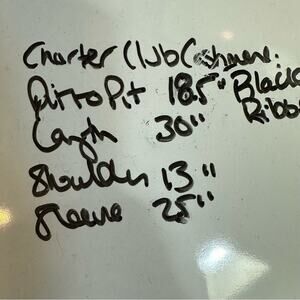 Charter Club Cashmere:
Pit to Pit 18.5" Black
Length 30" Ribb
Shoulder 13"
Sleeve 25"